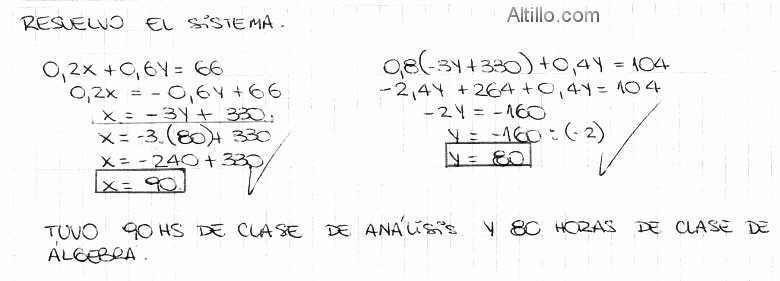 Altillo.com
RESUELVO EL SISTEMA.
0,2x + 0,6y = 66
0,2x = - 0,6y + 66
x = -3y + 330.
x = -3.(80) + 330
x = -240 + 330
x = 90
0,8(-3y + 330) + 0,4y = 104
-2,4y + 264 + 0,4y = 104
-2y = -160
y = -160 : (-2)
y = 80
TUVO 90 HS DE CLASE DE ANÁLISIS Y 80 HORAS DE CLASE DE
ÁLGEBRA.